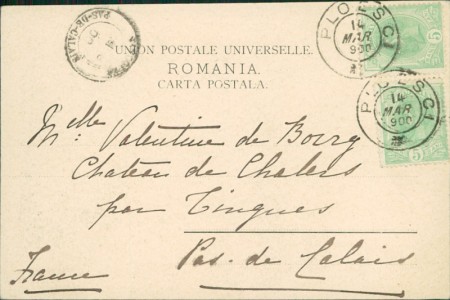 UNION POSTALE UNIVERSELLE.
ROMANIA.
CARTA POSTALA.
PAS-DE-CALAIS
PLOESCI
14
MAR
900
5
PLOESCI
14
MAR
900
5
Mlle Valentine de Borry
Chateau de Chalers
par Tingues
Pas-de Calais
France